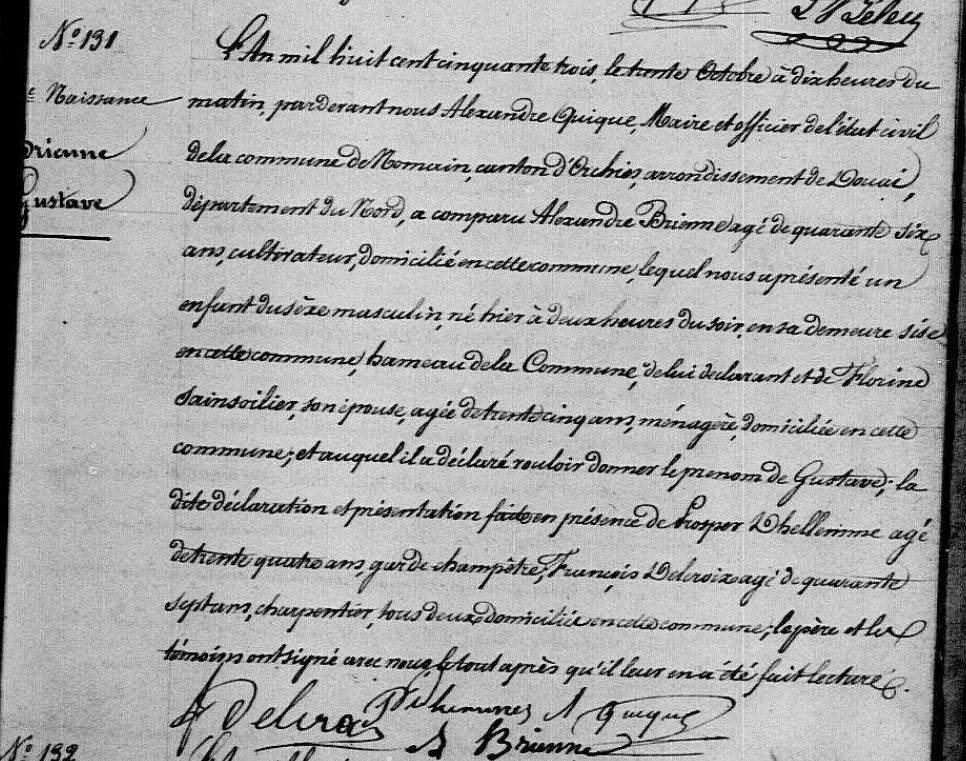 N.º 131
L'An mil huit cent cinquante trois, le trente Octobre à dix heures du
matin, par devant nous Alexandre Quique, Maire et officier de l'état civil
de la commune de Nomain, canton d'Orchies, arrondissement de Douai,
département du Nord, a comparu Alexandre Brienne agé de quarante six
ans, cultivateur, domicilié en cette commune, lequel nous a présenté un
enfant du sèxe masculin, né hier à deux heures du soir, en sa demeure sise
en cette commune, hameau de la Commune, de lui declarant et de Florine
Sainsoilier, son épouse, agée de trente cinq ans, ménagère, domiciliée en cette
commune; et auquel il a déclaré vouloir donner le prenom de Gustave; la
dite déclaration et présentation faite en présence de Prosper Dhellemme agé
de trente quatre ans, garde champêtre, François Delcroix agé de quarante
sept ans, charpentier, tous deux domiciliés en cette commune; le père et les
témoins ont signé avec nous, le tout après qu'il leur en a été fait lecture.
Naissance
Brienne
Gustave
Delcroix
A Quique
A Brienne
N.º 132